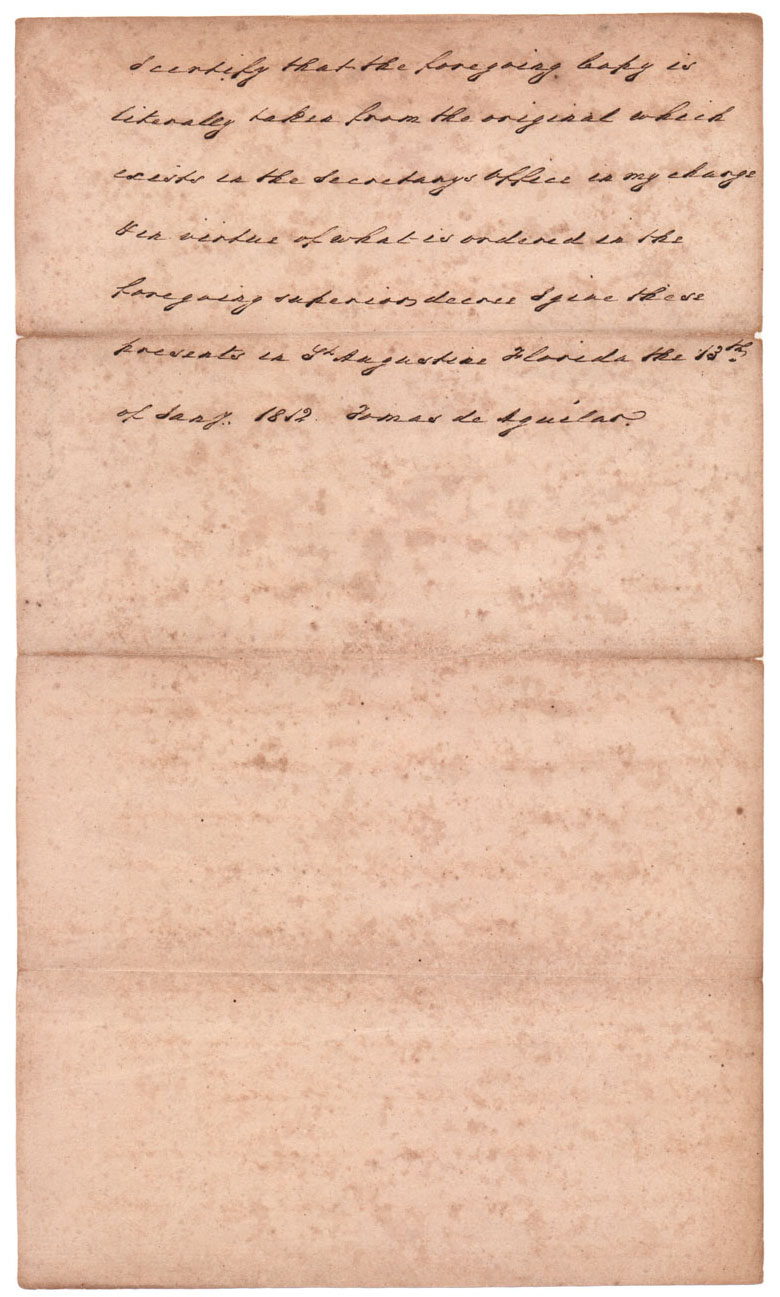 I certify that the foregoing Copy is
literally taken from the original which
exists in the Secretarys Office in my charge
& in virtue of what is ordered in the
foregoing superior decree I give these
presents in St. Augustine Florida the 13th
of Jany. 1812. Tomas de Aguilar.